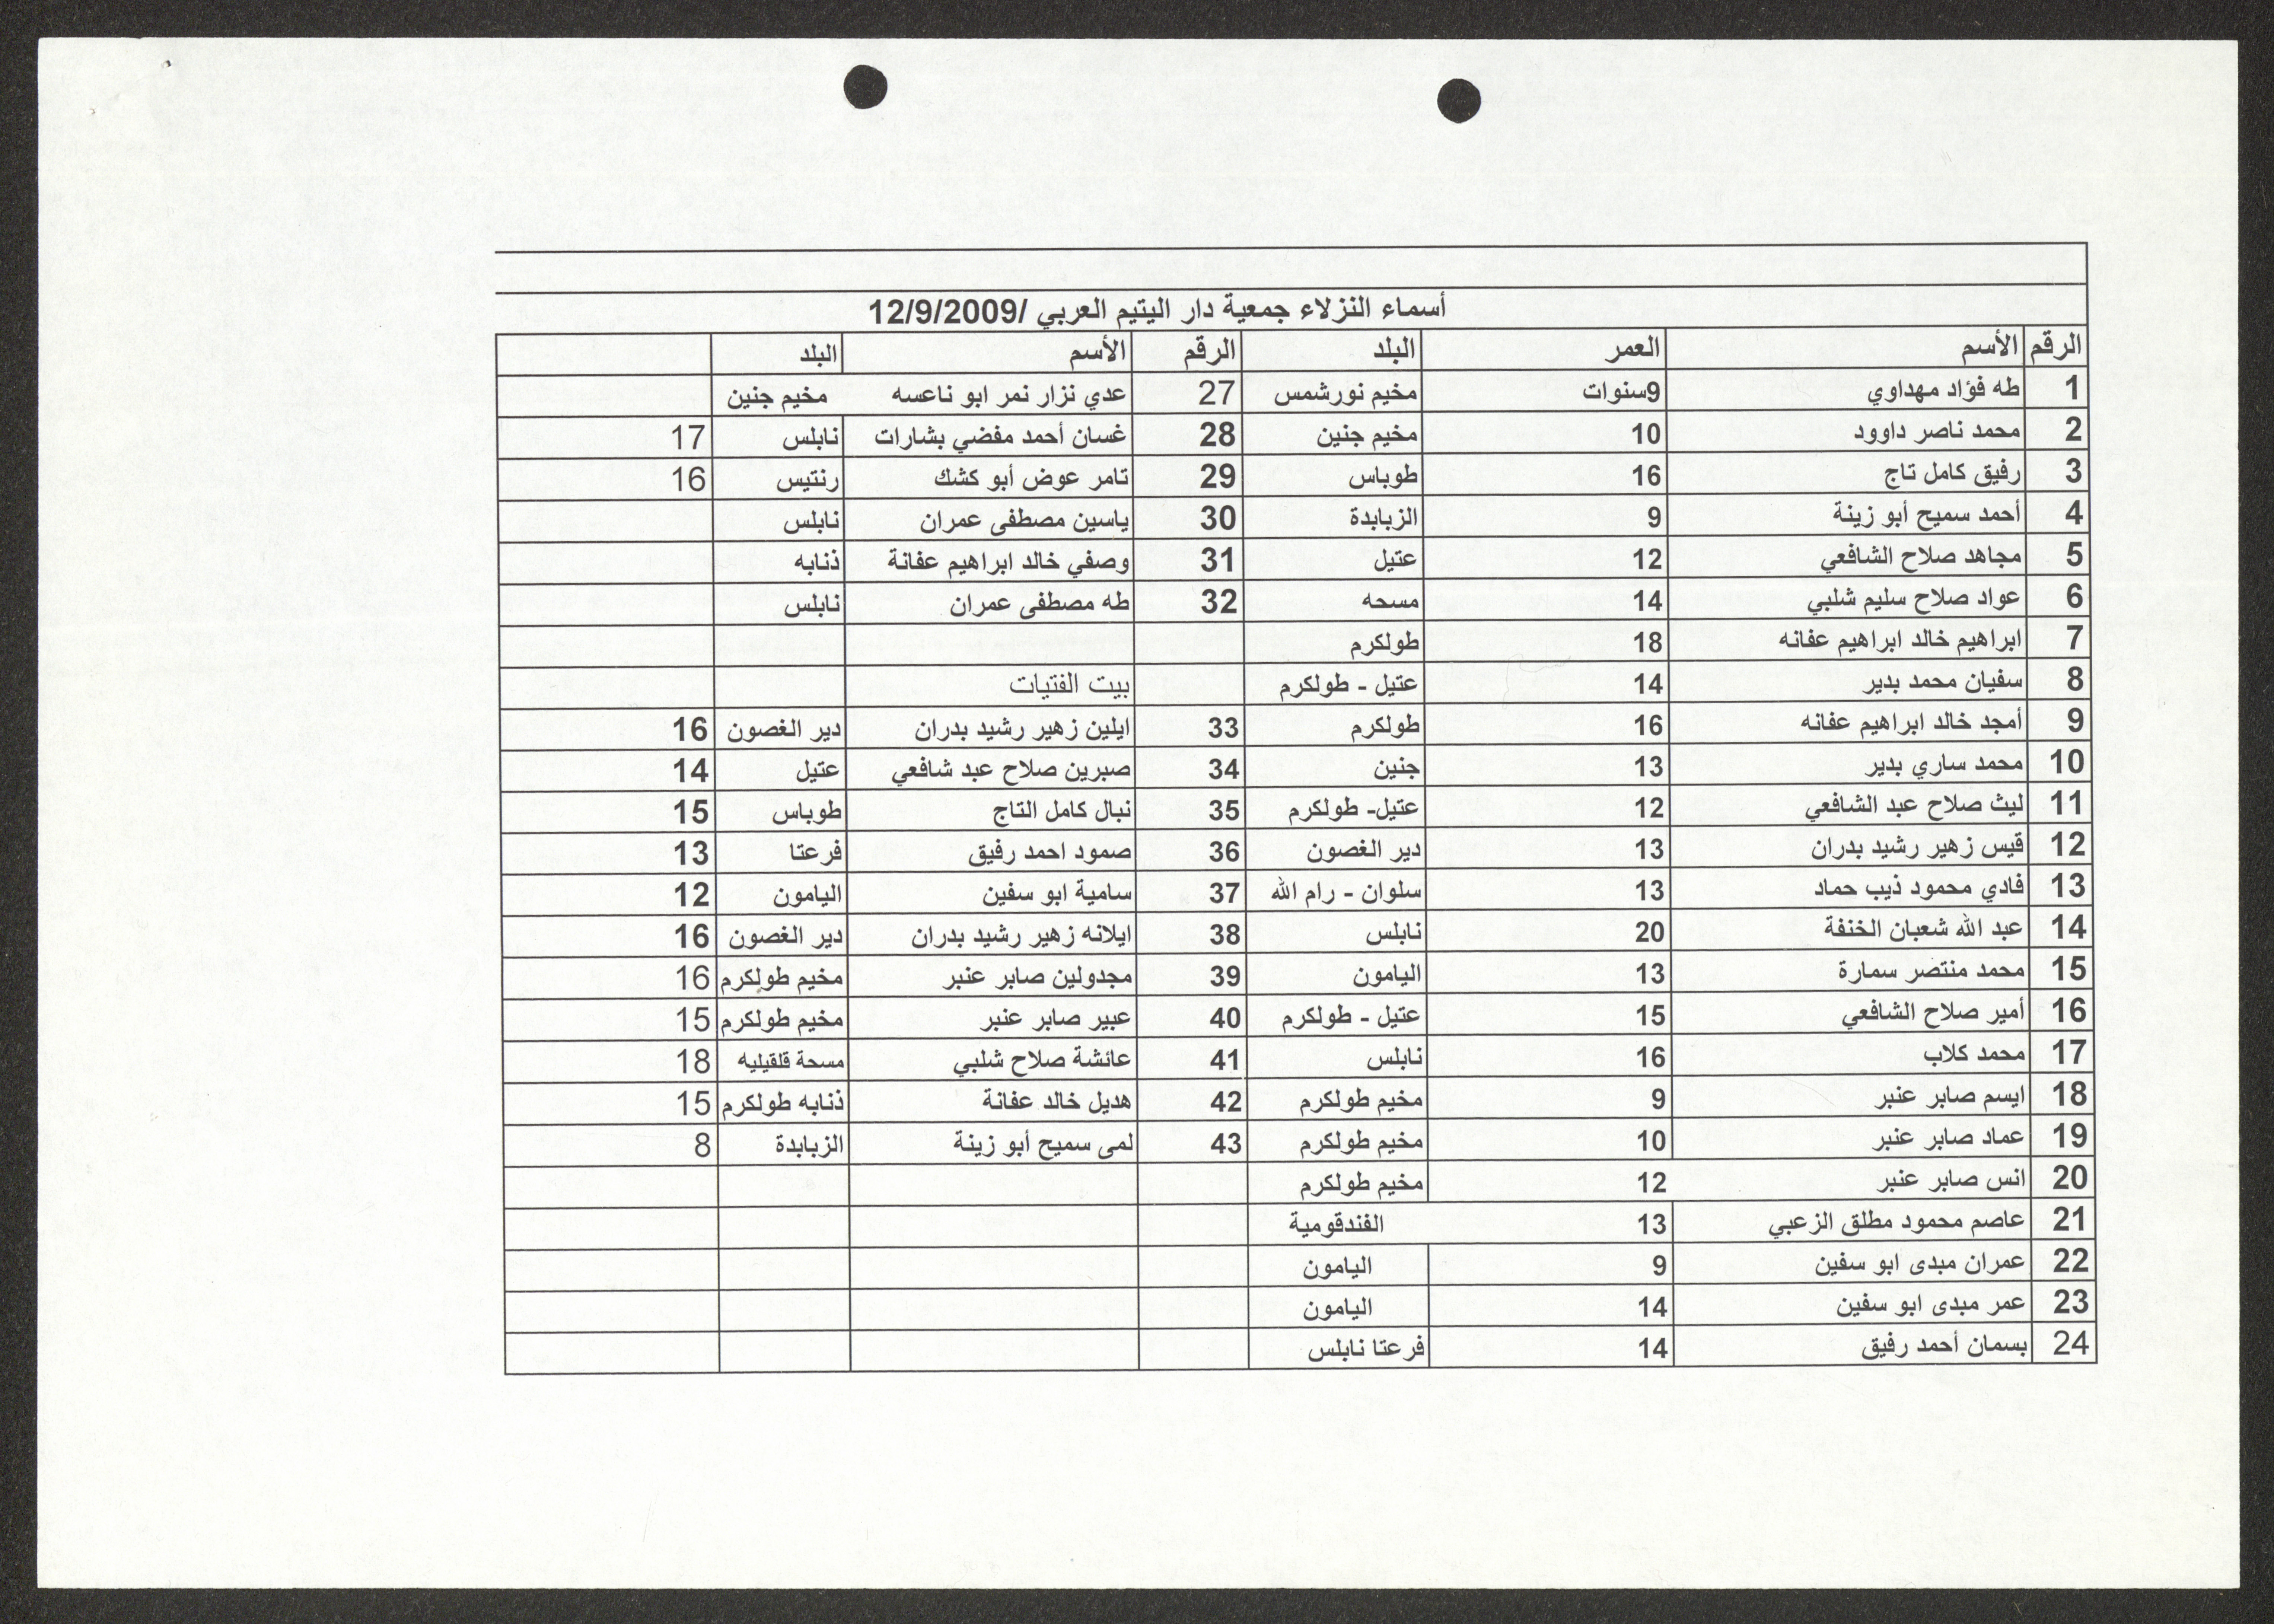 أسماء النزلاء جمعية دار اليتيم العربي /12/9/2009
الرقم الأسم العمر البلد الرقم الأسم البلد
1 طه فؤاد مهداوي 9سنوات مخيم نورشمس 27 عدي نزار نمر ابو ناعسه مخيم جنين
2 محمد ناصر داوود 10 مخيم جنين 28 غسان أحمد مفضي بشارات نابلس 17
3 رفيق كامل تاج 16 طوباس 29 تامر عوض أبو كشك رنتيس 16
4 أحمد سميح أبو زينة 9 الزبابدة 30 ياسين مصطفى عمران نابلس
5 مجاهد صلاح الشافعي 12 عتيل 31 وصفي خالد ابراهيم عفانة ذنابه
6 عواد صلاح سليم شلبي 14 مسحه 32 طه مصطفى عمران نابلس
7 ابراهيم خالد ابراهيم عفانه 18 طولكرم
8 سفيان محمد بدير 14 عتيل - طولكرم بيت الفتيات
9 أمجد خالد ابراهيم عفانه 16 طولكرم 33 ايلين زهير رشيد بدران دير الغصون 16
10 محمد ساري بدير 13 جنين 34 صبرين صلاح عبد شافعي عتيل 14
11 ليث صلاح عبد الشافعي 12 عتيل- طولكرم 35 نبال كامل التاج طوباس 15
12 قيس زهير رشيد بدران 13 دير الغصون 36 صمود احمد رفيق فرعتا 13
13 فادي محمود ذيب حماد 13 سلوان - رام الله 37 سامية ابو سفين اليامون 12
14 عبد الله شعبان الخنفة 20 نابلس 38 ايلانه زهير رشيد بدران دير الغصون 16
15 محمد منتصر سمارة 13 اليامون 39 مجدولين صابر عنبر مخيم طولكرم 16
16 أمير صلاح الشافعي 15 عتيل - طولكرم 40 عبير صابر عنبر مخيم طولكرم 15
17 محمد كلاب 16 نابلس 41 عائشة صلاح شلبي مسحة قلقيليه 18
18 ايسم صابر عنبر 9 مخيم طولكرم 42 هديل خالد عفانة ذنابه طولكرم 15
19 عماد صابر عنبر 10 مخيم طولكرم 43 لمى سميح أبو زينة الزبابدة 8
20 انس صابر عنبر 12 مخيم طولكرم
21 عاصم محمود مطلق الزعبي 13 الفندقومية
22 عمران مبدى ابو سفين 9 اليامون
23 عمر مبدى ابو سفين 14 اليامون
24 بسمان أحمد رفيق 14 فرعتا نابلس